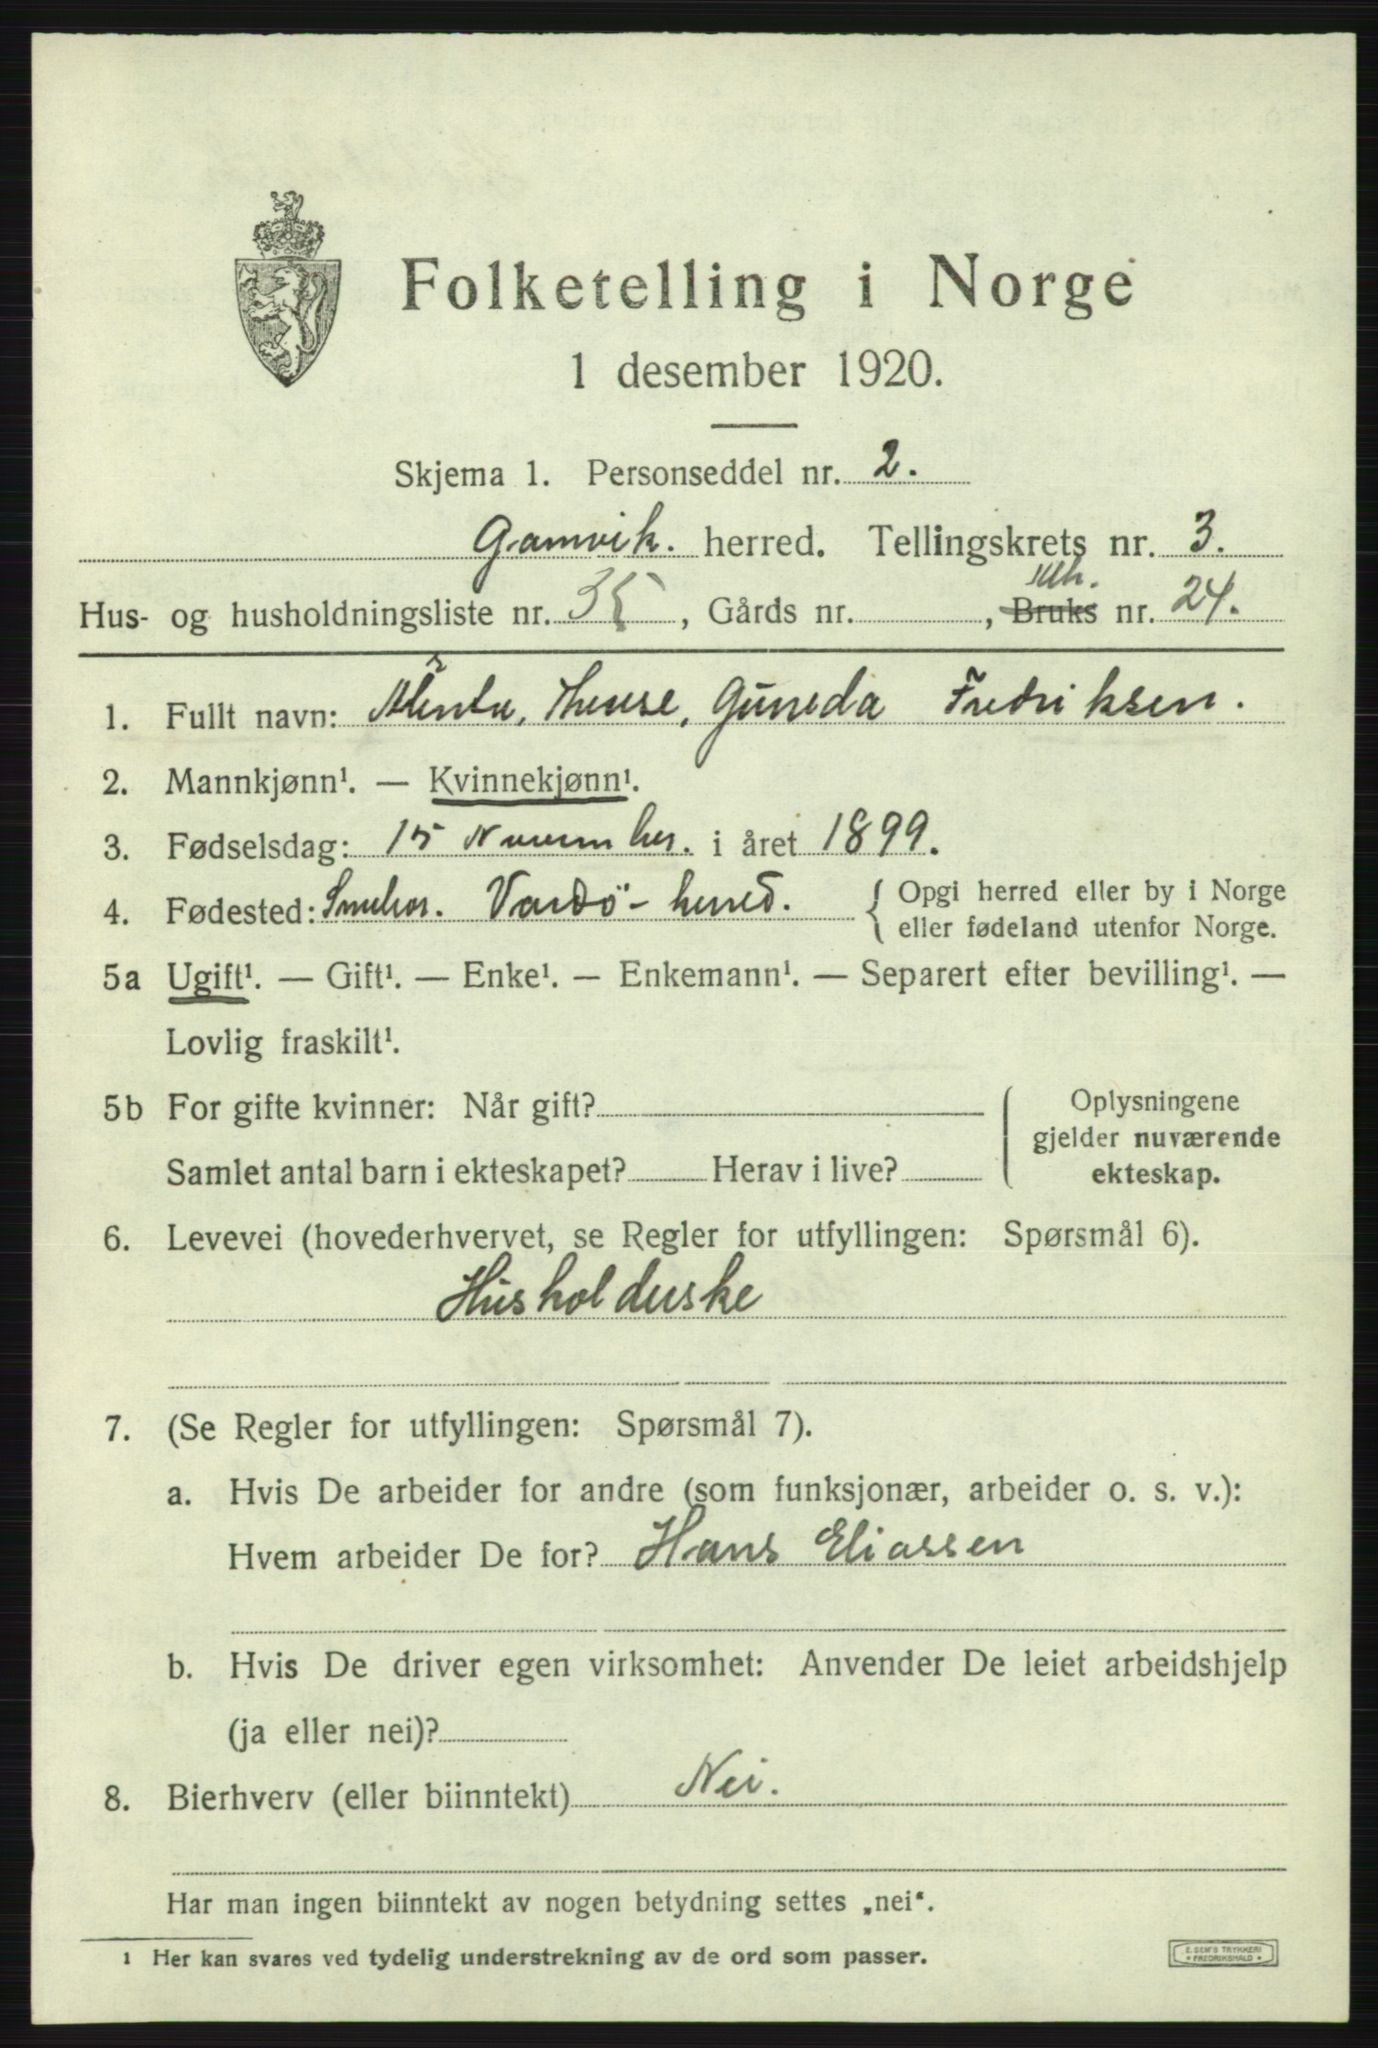 Folketelling i Norge
1 desember 1920.
Skjema 1. Personseddel nr. 2.
Gamvik. herred. Tellingskrets nr. 3.
Hus- og husholdningsliste nr. 35, Gårds nr. , Bruks nr. 24.
1. Fullt navn: Guneda Fredriksen.
2. Mannkjønn¹. — Kvinnekjønn¹.
3. Fødselsdag: 15 November. i året 1899.
4. Fødested: Vardö-herred. { Opgi herred eller by i Norge
eller fødeland utenfor Norge.
5a Ugift¹. — Gift¹. — Enke¹. — Enkemann¹. — Separert efter bevilling¹. —
Lovlig fraskilt¹.
5b For gifte kvinner: Når gift?
Samlet antal barn i ekteskapet? Herav i live?
Oplysningene
gjelder nuværende
ekteskap.
6. Levevei (hovederhvervet, se Regler for utfyllingen: Spørsmål 6).
Husholderske
7. (Se Regler for utfyllingen: Spørsmål 7).
a. Hvis De arbeider for andre (som funksjonær, arbeider o. s. v.):
Hvem arbeider De for? Hans Eliassen
b. Hvis De driver egen virksomhet: Anvender De leiet arbeidshjelp
(ja eller nei)?
8. Bierhverv (eller biinntekt) Nei.
Har man ingen biinntekt av nogen betydning settes „nei“.
¹ Her kan svares ved tydelig understrekning av de ord som passer.
E. SEM'S TRYKKERI
FREDRIKSHALD